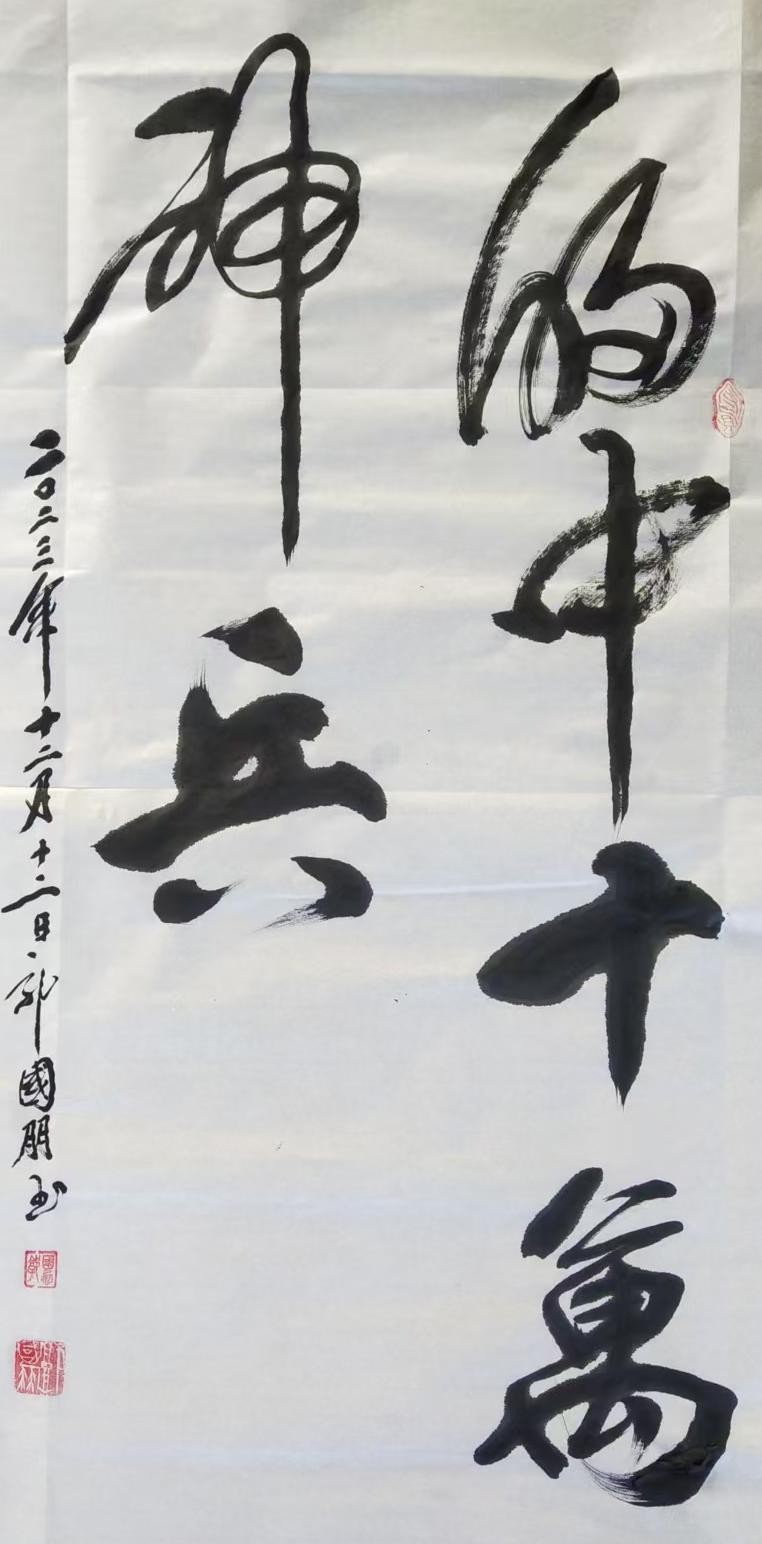 胸中十萬
神兵
二〇二三年十二月十二日國朋书